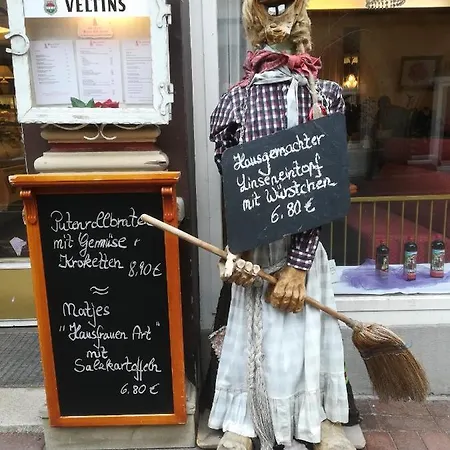 VELTINS
Hausgemachter
Linseneintopf
mit Würstchen
6.80 €
Putenrollbraten
mit Gemüse
Kroketten 8,90 €
≈
Matjes
"Hausfrauen Art"
mit
Salzkartoffeln
6.80 €